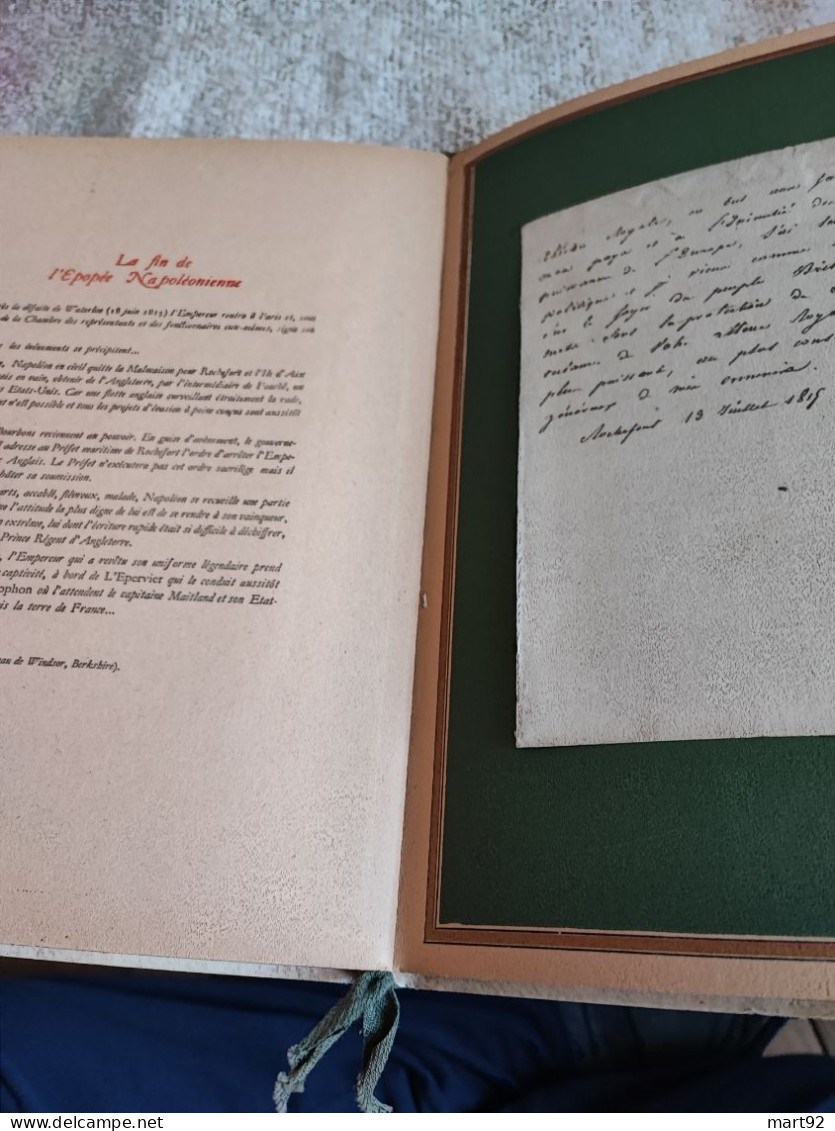 La fin de
l'Epopée Napoléonienne
la défaite de Waterloo (18 juin 1815) l'Empereur rentre à Paris et, sous
de la Chambre des représentants et des fonctionnaires eux-mêmes, signe son
des événements se précipitent...
Napoléon en civil quitte la Malmaison pour Rochefort et l'Ile d'Aix
en vain, obtenir de l'Angleterre, par l'intermédiaire de Fouché, un
Etats-Unis. Car une flotte anglaise surveillant étroitement la rade,
n'est possible et tous les projets d'évasion à peine conçus sont aussitôt
Bourbons reviennent au pouvoir. En guise d'avènement, le gouverne-
adresse au Préfet maritime de Rochefort l'ordre d'arrêter l'Empe-
Anglais. Le Préfet n'exécutera pas cet ordre sacrilège mais il
hâter sa soumission.
accablé, fiévreux, malade, Napoléon se recueille une partie
l'attitude la plus digne de lui est de se rendre à son vainqueur,
extrême, lui dont l'écriture rapide était si difficile à déchiffrer,
Prince Régent d'Angleterre.
l'Empereur qui a revêtu son uniforme légendaire prend
captivité, à bord de L'Epervier qui le conduit aussitôt
ophon où l'attendent le capitaine Maitland et son Etat-
la terre de France...
de Windsor, Berkshire).
Altesse Royale, en but aux
mon pays et à l'inimitié
puissances de l'Europe, j'ai
politique et je viens comme
sur le foyer du peuple
mets sous la protection de
de votre altesse Royale
plus puissant, au plus
généreux de mes ennemis.
Rochefort 13 Juillet 1815
mart92